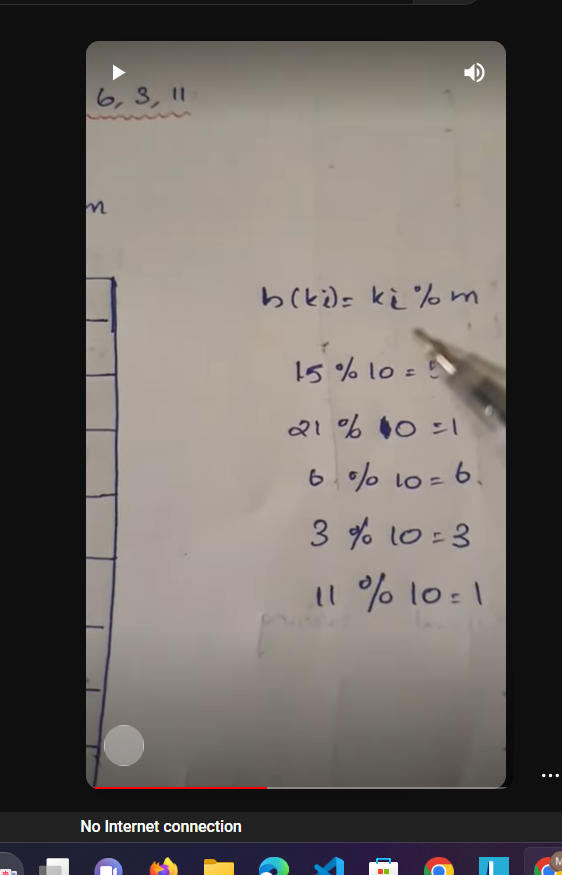 6, 3, 11
m
h(ki)= ki % m
15 % 10 =
21 % 10 = 1
6 % 10 = 6.
3 % 10 = 3
11 % 10 = 1
No Internet connection